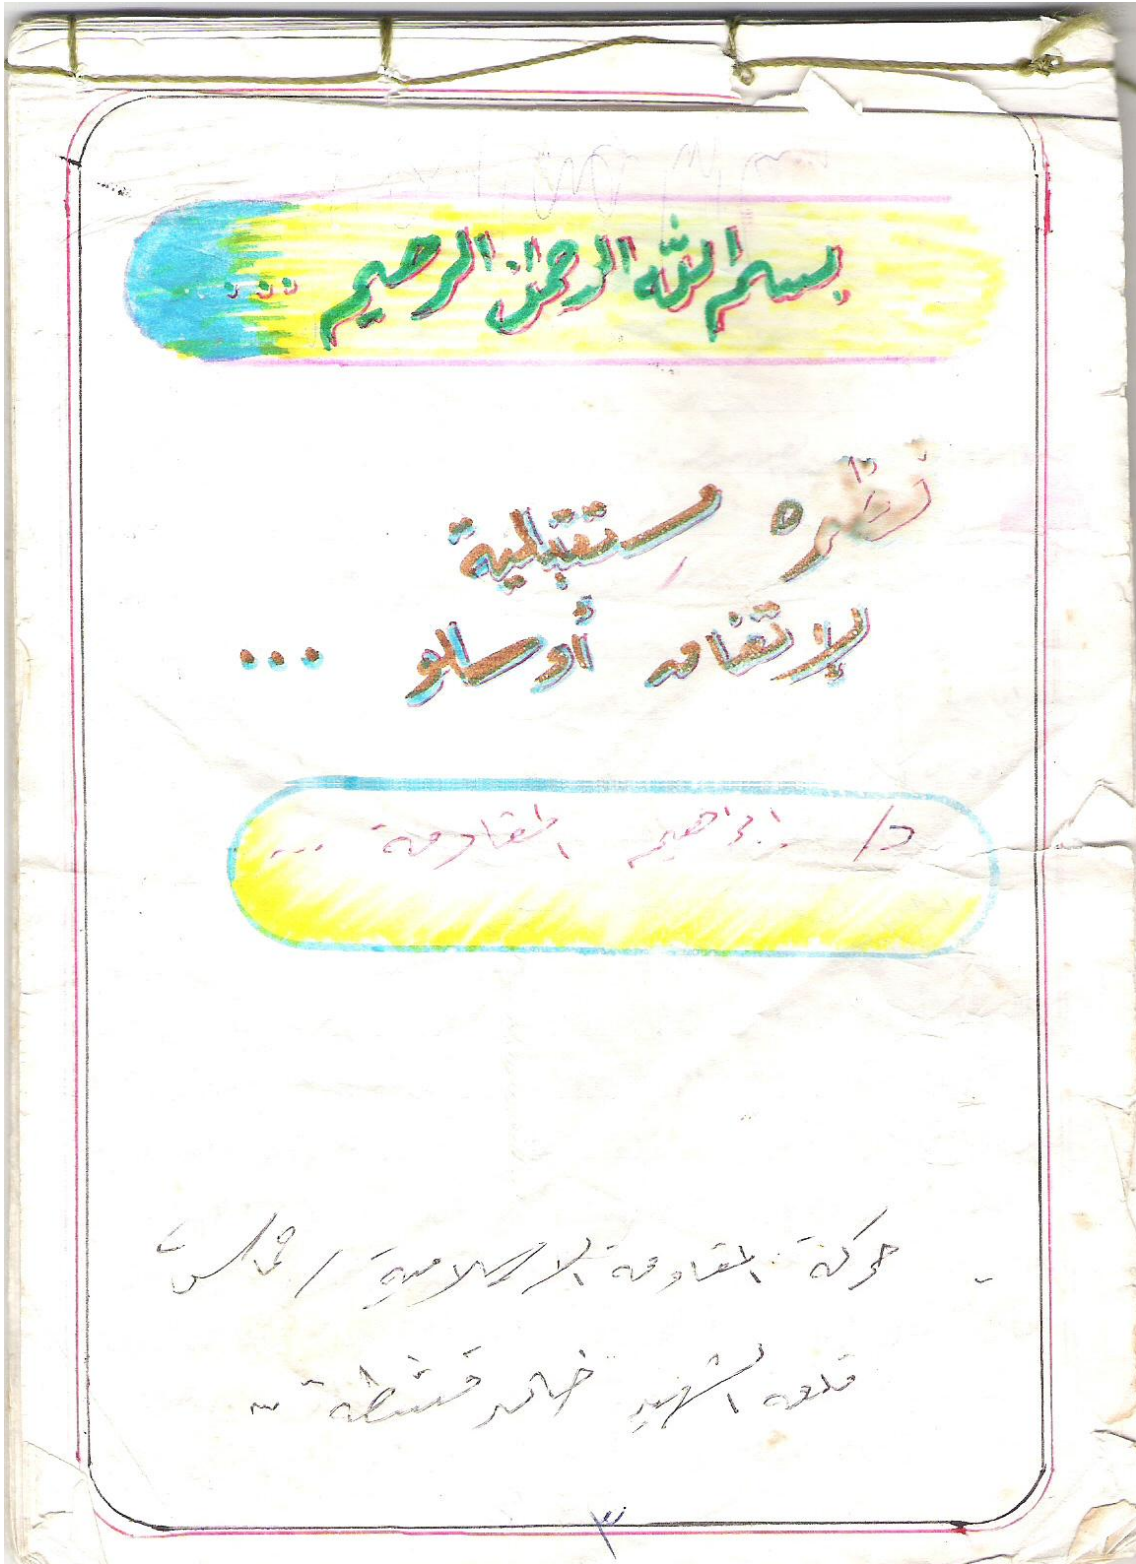 بسم الله الرحمن الرحيم ...
نظره مستقبلية
لإتفاق أوسلو ...
د/ ابراهيم المقادمة ...
حركة المقاومة الاسلامية / حماس
قلعه الشهيد خالد
٣